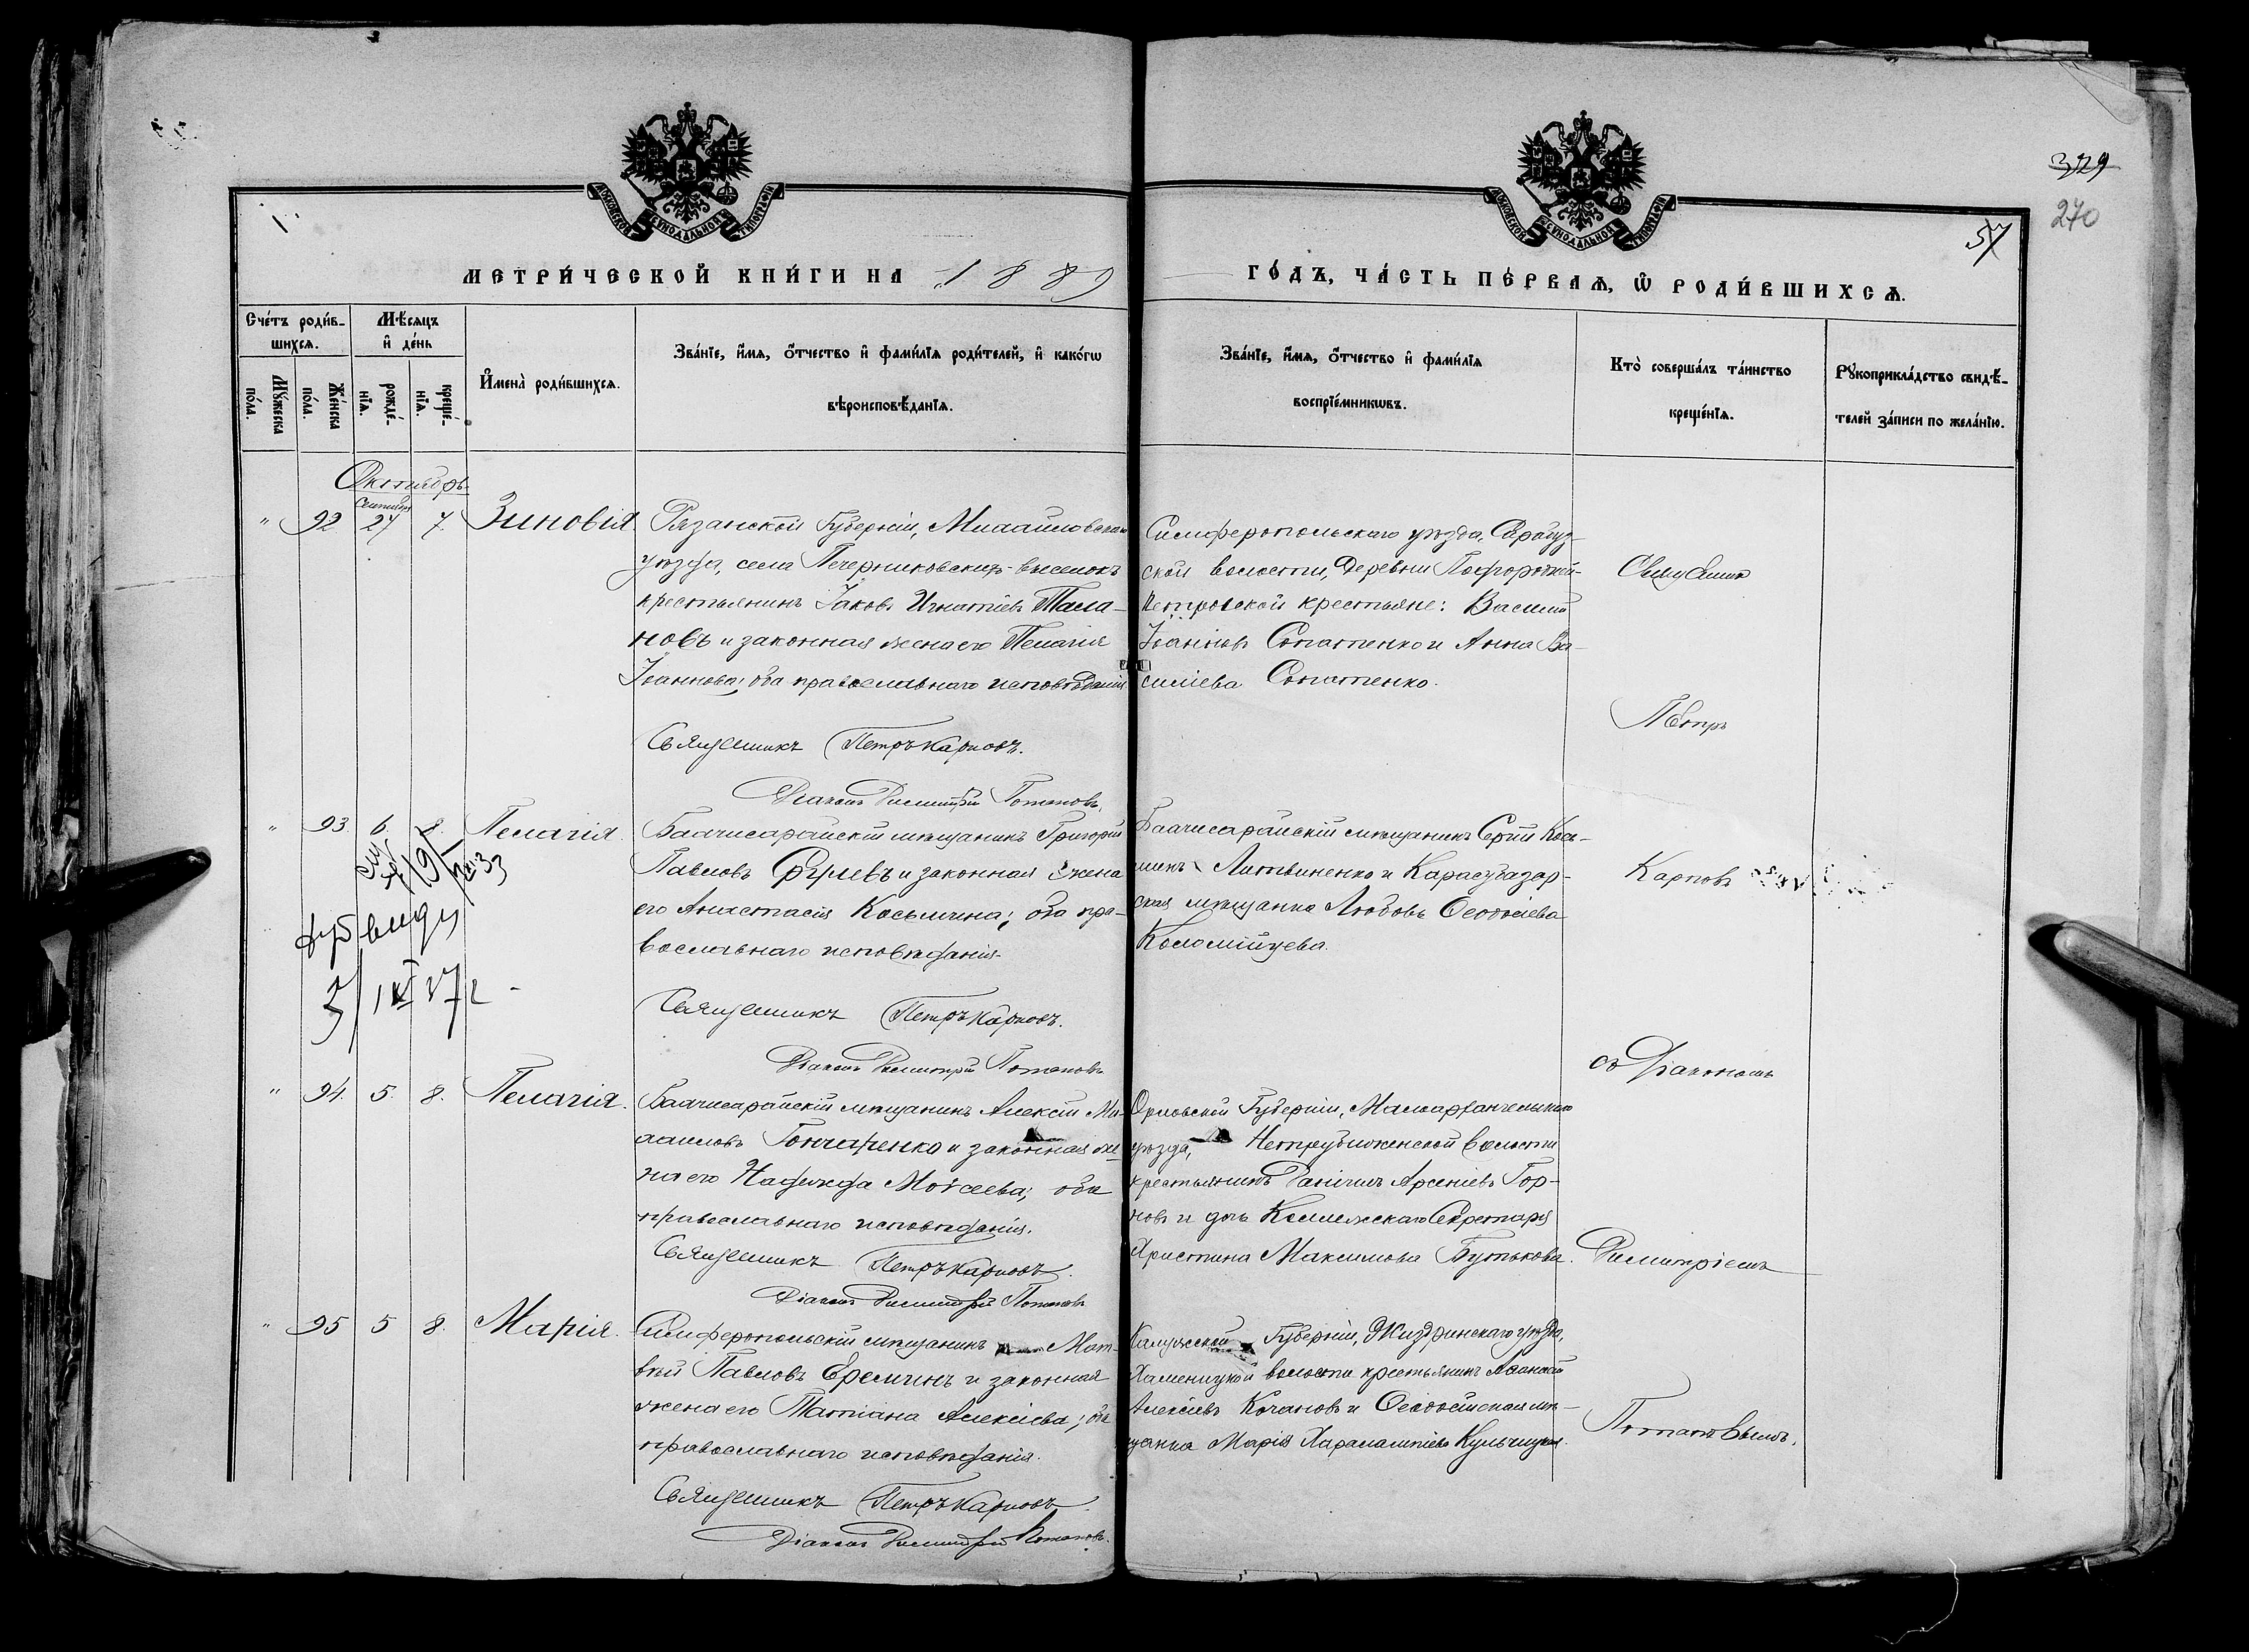 329
270
57
МОСКОВСКОЙ СѴНОДАЛЬНОЙ ТИПОГРАФІИ
МОСКОВСКОЙ СѴНОДАЛЬНОЙ ТИПОГРАФІИ
МЕТРИ́ЧЕСКОЙ КНИ́ГИ НА 1889
ГО́ДЪ, ЧА́СТЬ ПЕ́РВАѦ, Ѿ РОДИ́ВШИХСѦ.
Сче́тъ роди́в-
шихсѧ.
Мѣ́сѧцъ
и҆ де́нь
Мꙋ́жеска
по́ла.
Же́нска
по́ла.
рожде́-
нїѧ.
креще́-
нїѧ.
И҆мена̀ роди́вшихсѧ.
Зва́нїе, и҆́мѧ, ѻ҆́тчество и҆ фами́лїѧ роди́телей, и҆ како́гѡ
вѣроисповѣ́данїѧ.
Зва́нїе, и҆́мѧ, ѻ҆́тчество и҆ фами́лїѧ
воспрїе́мникѡвъ.
Кто̀ соверша́лъ та́инство
креще́нїѧ.
Рꙋкоприкла́дство свидѣ́-
телей за́писи по жела́нїю.
Октябрь
Сентябр
" 92 27 7. Зиновія
Рязанской Губерніи, Михайловскаго
уѣзда, села Печерниковскихъ-выселокъ
крестьянинъ Іаковъ Игнатіевъ Тала-
новъ и законная жена его Пелагія
Іоаннова; оба православнаго исповѣданія
Священникъ Петръ Карповъ.
Діаконъ Димитрій Потаповъ.
Симферопольскаго уѣзда, Сарабуз-
ской волости, Деревни Подгородней-
Петровской крестьяне: Василій
Іоанновъ Сопатенко и Анна Ва-
силіева Сопатенко.
Священник
Петръ
" 93 6. 8. Пелагія.
Бахчисарайскій мѣщанинъ Григорій
Павловъ и законная жена
его Анастасія Косьмина; оба пра-
вославнаго исповѣданія.
Священникъ Петръ Карповъ.
Діаконъ Димитрій Потаповъ
Бахчисарайскій мѣщанинъ Сергій Кось-
минъ Литвиненко и Карасубазар-
ская мѣщанка Любовь Ѳеодосіева
Коломійцева.
Карповъ
съ Діакономъ
" 94. 5. 8. Пелагія.
Бахчисарайскій мѣщанинъ Алексій Ми-
хаиловъ Гончаренко и законная же-
на его Надежда Моѵсеева; оба
православнаго исповѣданія.
Священникъ Петръ Карповъ.
Діаконъ Димитрій Потаповъ
Орловской Губерніи, Малоархангельскаго
уѣзда, волости
крестьянинъ Даніилъ Арсеніевъ Гор-
новъ и дочь Коллежскаго Секретаря
Христина Максимова Бутькова.
Димитріемъ
" 95 5 8. Марія.
Симферопольскій мѣщанинъ Мат-
вѣй Павловъ Ереминъ и законная
жена его Татіана Алексіева; оба
православнаго исповѣданія.
Священникъ Петръ Карповъ
Діаконъ Димитрій Потаповъ.
Калужской Губерніи, Жиздринскаго уѣзда,
волости крестьянинъ Аѳанасій
Алексіевъ Кочановъ и Ѳеодосійская мѣ-
щанка Марія Харалампіева Кульчицкая.
Потаповымъ.